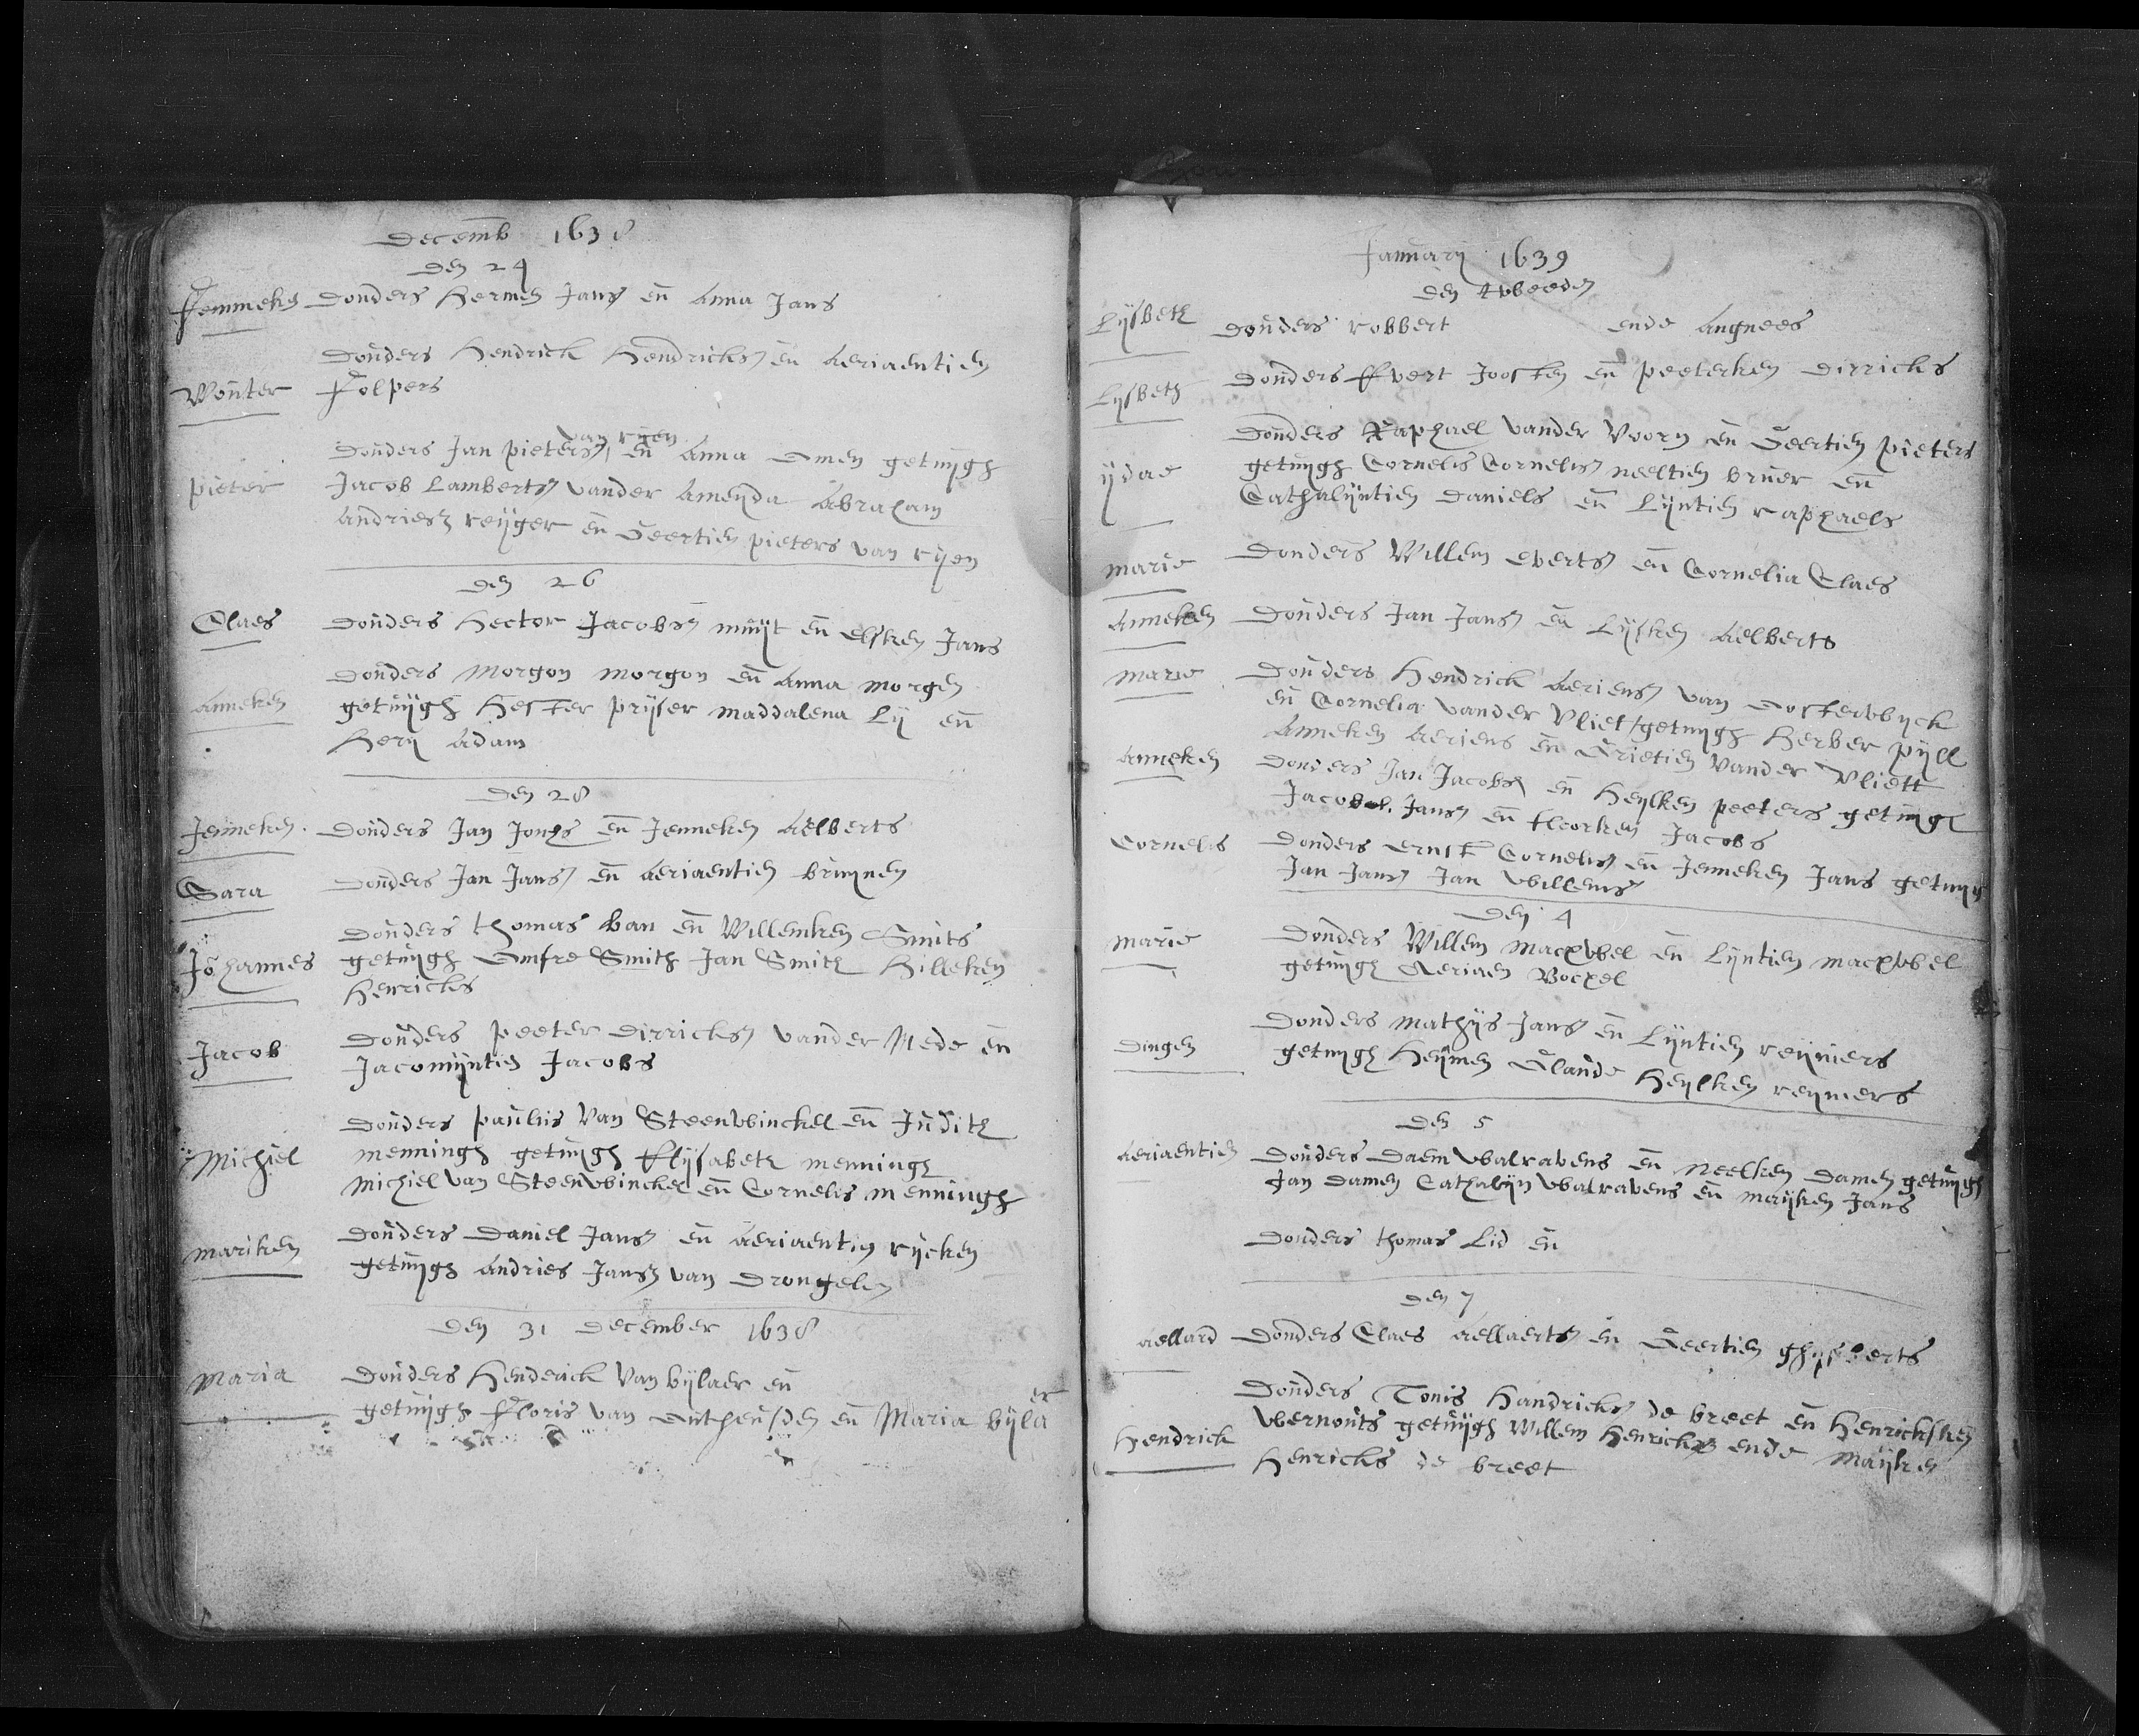 Decemb 1638
Den 24
Femmeken Donders Hermen Jansz en Anna Jans
Donders Hendrick Hendricksz en Aeriaentien
Wouter Folpers
van rijen
Donders Jan Pietersz en Anna Omen getuijgh
Pieter Jacob Lambertsz vander Ameijda Abraham
Andriesz reijger en Geertien pieters van rijen
Den 26
Claes Donders Hector Jacobsz muijt en elsken Jans
Donders Morgon morgon en Anna morgen
Anneken getuijgh Hester prijser maddalena Lij en
Herij Adam
Den 28
Jenneken Donders Jan Jonss en Jenneken Aelberts
Sara Donders Jan Jansz en Aeriaentien bruijnen
Donders thomas ban en Willemken Smits
Johannes getuijgh Omfre Smith Jan Smith Hilleken
Henricks
Donders peeter Dirricksz vander Mede en
Jacob Jacomijntien Jacobs
Donders paulus van Steenwinckel en Judith
Michiel menningh getuijgh Elijsabeth menningh
Michiel van Steenwinckel en Cornelis menningh
Donders Daniel Jansz en Aeriaentien rijcken
mariken getuijgh Andries Jansz van Drongelen
Den 31 December 1638
Maria Donders Henderick van bijlaer en
getuijgh Floris van en Maria bijlaer
January 1639
Den tweeden
Lijsbeth Donders robbert ende Angnees
Lijsbeth Donders Evert Joosten en peeterken Dirricks
Donders Raphael vander Voorn en Geertien pieters
ijdae getuijgh Cornelis Cornelisz neeltien bruer en
Cathalijntien Daniels en Lijntien raphaels
marie Donders Willem evertsz en Cornelia Claes
Anneken Donders Jan Jansz en Lijsken Aelberts
Marie Donders Hendrick Aeriensz van Oosterwijck
en Cornelia vander Vliet/getuijgh Herber pijll
Anneken Aeriens en Grietien vander Vliett
Anneken Donders Jan Jacobsz en Heijlken peeters getuijgh
Jacob Jansz en fleorken Jacobs
Cornelis Donders ernst Cornelisz en Jenneken Jans getuijg
Jan Jansz Jan Willemsz
Den 4
marie Donders Willem macxwel en Lijntien macxwel
getuijgh Aeriaen Boexel
Donders mathijs Jansz en Lijntien reijniers
Dingen getuijgh Heijmen Glaude Heijlken reijniers
Den 5
Aeriaentien Donders Daem walravens en Neelken Damen getuijgh
Jan Damen Cathalijn walravens en maijken Jans
Donders thomas Lid en
Den 7
Aellard Donders Claes Aellaertsz en Geertien ghijsberts
Donders Tonis Handricksz de breet en Henricksken
Hendrick wernouts getuijgh Willem Henricksz ende Maijken
Henricks de breet